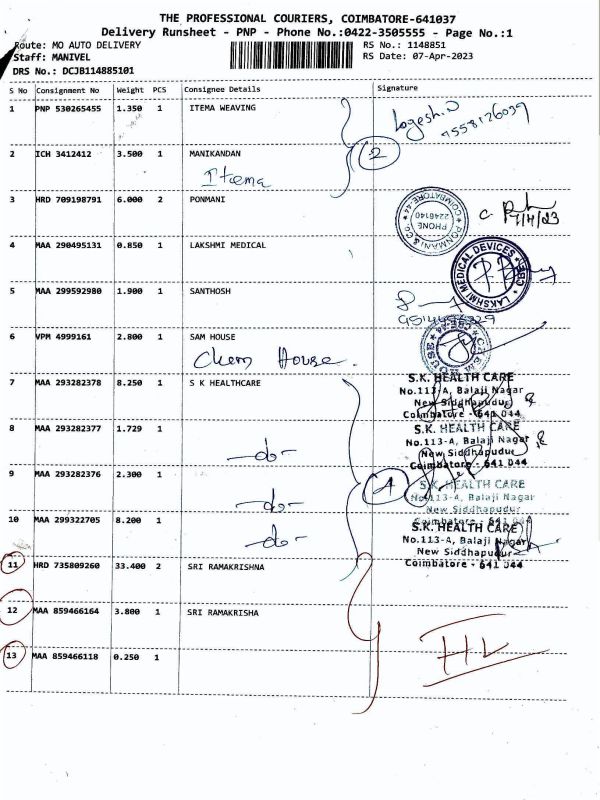 THE PROFESSIONAL COURIERS, COIMBATORE-641037
Delivery Runsheet - PNP - Phone No.:0422-3505555 - Page No.:1
Route: MO AUTO DELIVERY
RS No.: 1148851
Staff: MANIVEL
RS Date: 07-Apr-2023
DRS No.: DCJB114885101
S No Consignment No Weight PCS Consignee Details Signature
1 PNP 530265455 1.350 1 ITEMA WEAVING
Logesh.D
9558126039
2 ICH 3412412 3.500 1 MANIKANDAN
2
Itema
3 HRD 709198791 6.000 2 PONMANI
PONMANI & CO
PHONE
2246140
COIMBATORE-44
7/4/23
4 MAA 290495131 0.850 1 LAKSHMI MEDICAL
LAKSHMI MEDICAL DEVICES
CBE
5 MAA 299592980 1.900 1 SANTHOSH
6 VPM 4999161 2.800 1 SAM HOUSE
Chem House.
7 MAA 293282378 8.250 1 S K HEALTHCARE
S.K. HEALTH CARE
No.113-A, Balaji Nagar
New Siddhapudur
Coimbatore - 641 044
8 MAA 293282377 1.729 1
-do-
S.K. HEALTH CARE
No.113-A, Balaji Nagar
New Siddhapudur
Coimbatore - 641 044
9 MAA 293282376 2.300 1
-do-
4
S.K. HEALTH CARE
No.113-A, Balaji Nagar
New Siddhapudur
Coimbatore - 641 044
10 MAA 299322705 8.200 1
-do-
S.K. HEALTH CARE
No.113-A, Balaji Nagar
New Siddhapudur
Coimbatore - 641 044
11 HRD 735809260 33.400 2 SRI RAMAKRISHNA
12 MAA 859466164 3.800 1 SRI RAMAKRISHA
13 MAA 859466118 0.250 1